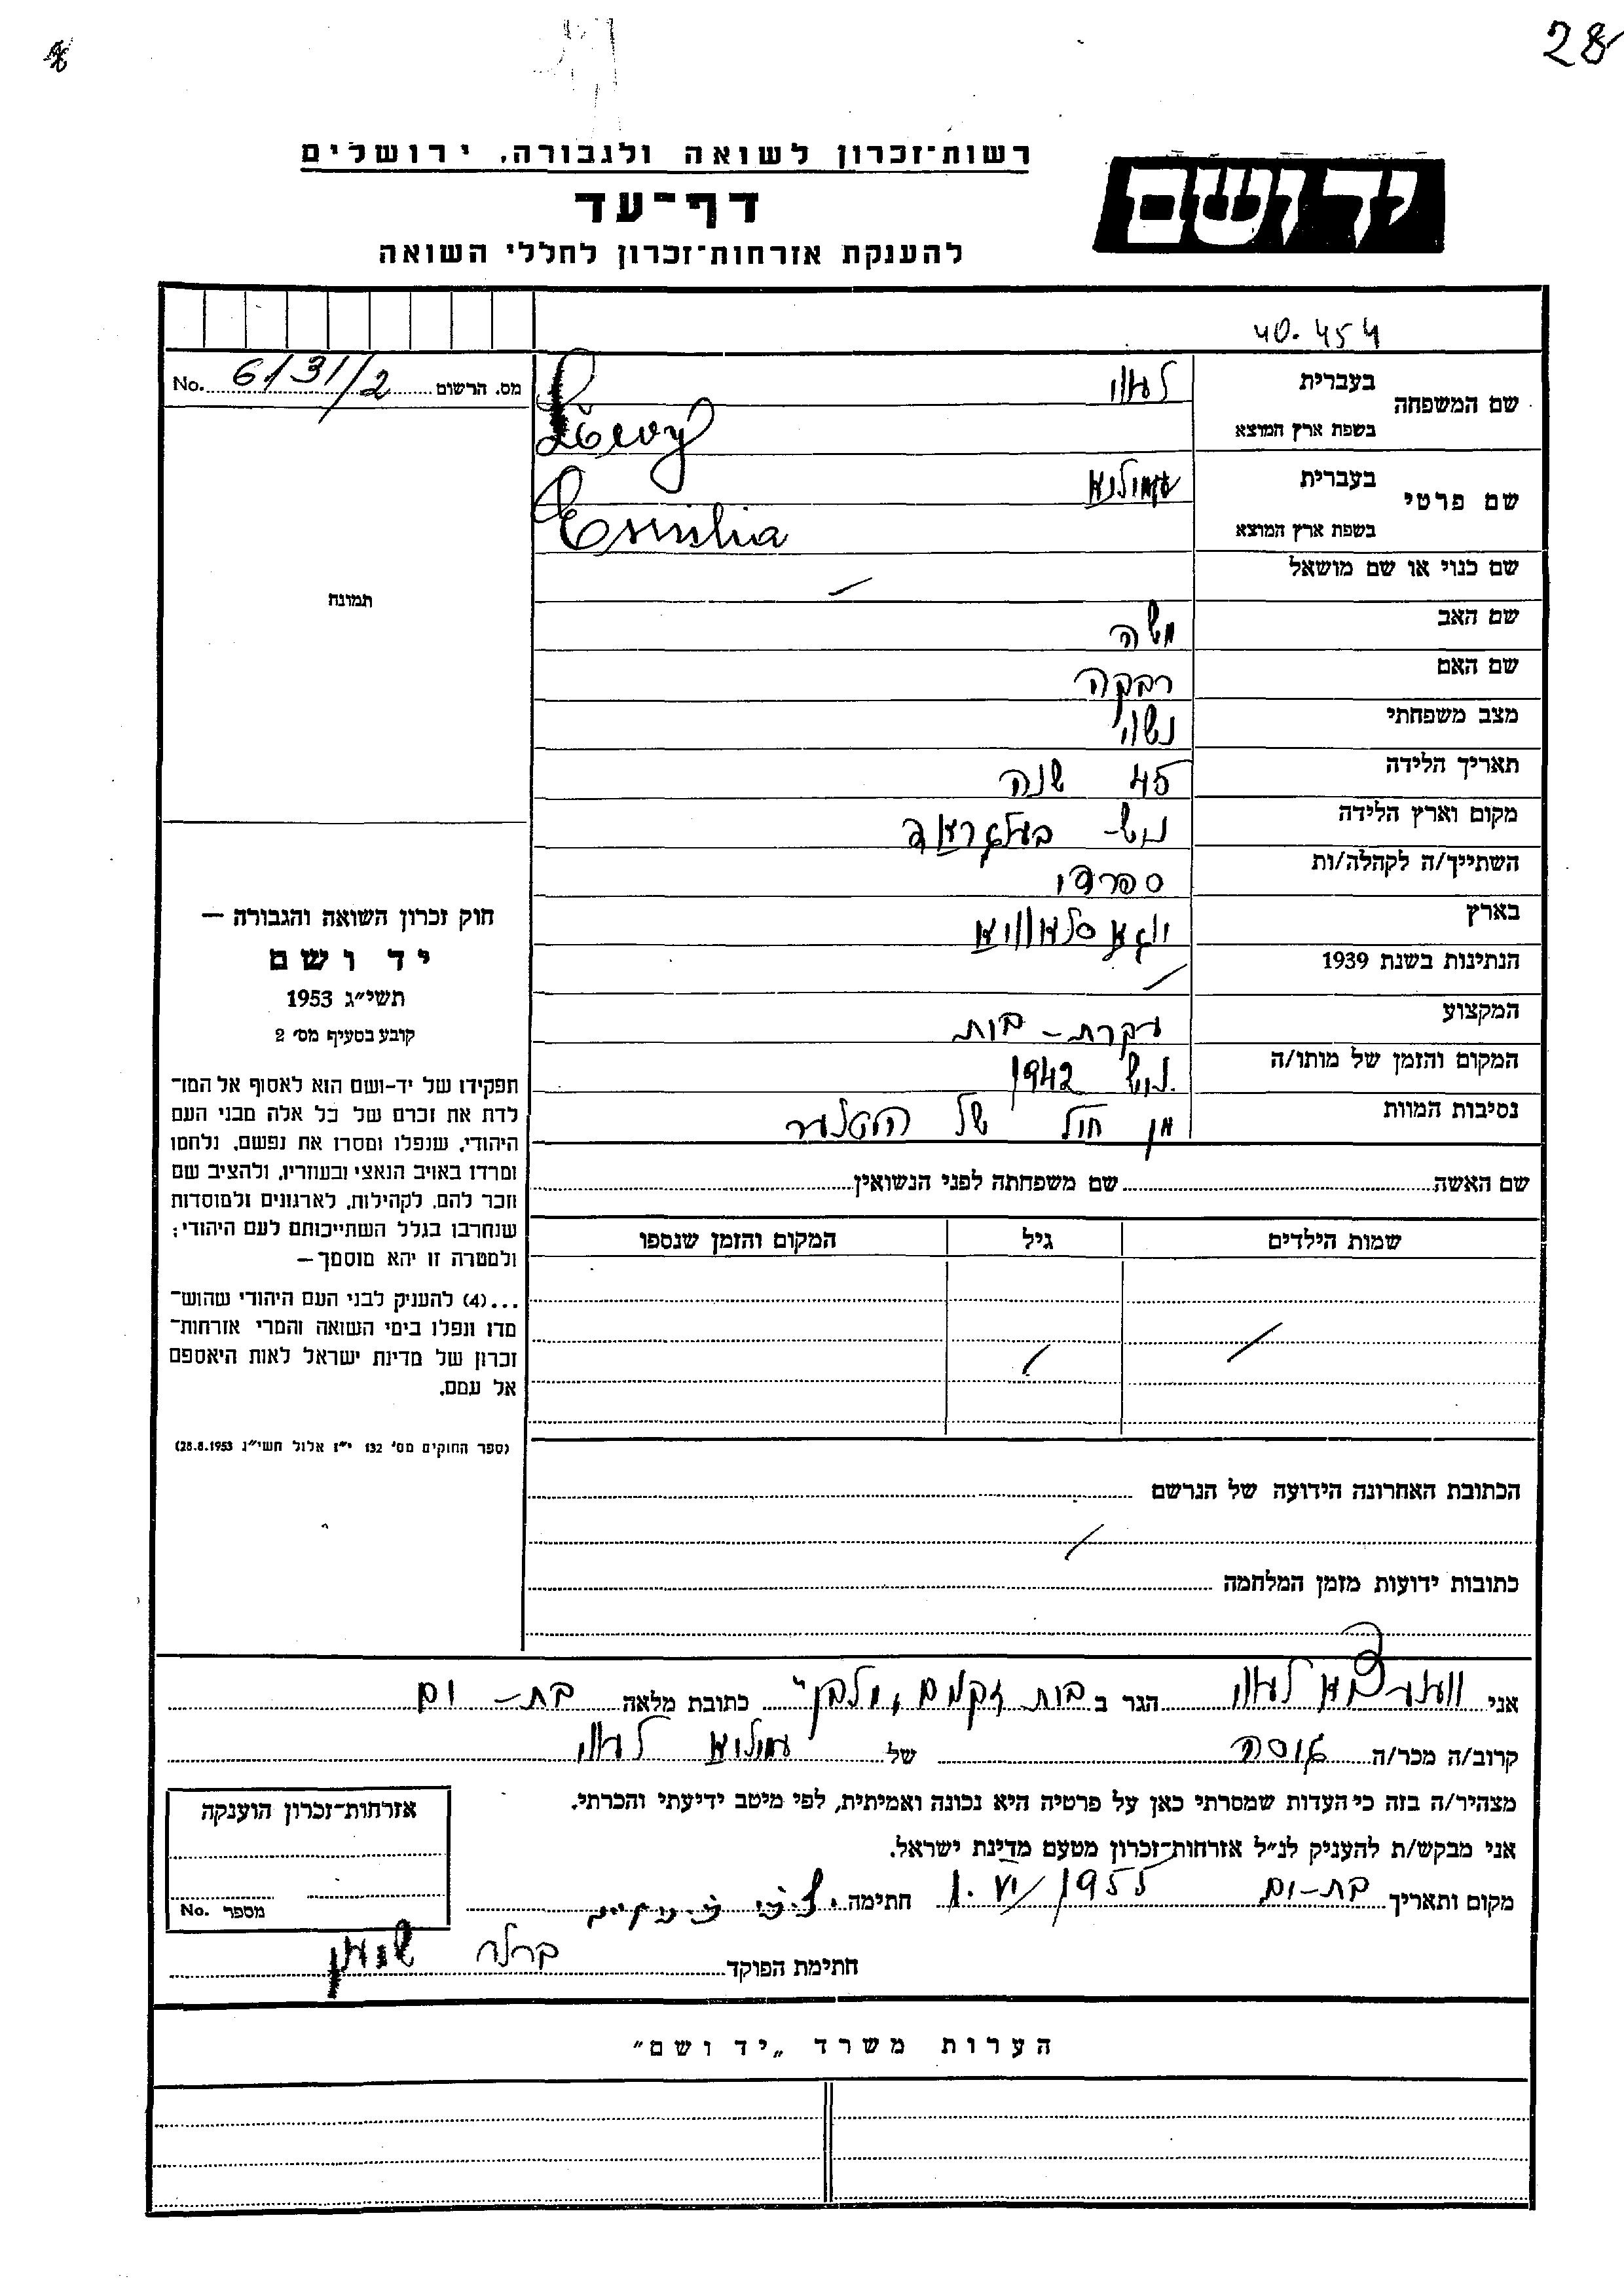 28
רשות־זכרון לשואה ולגבורה, ירושלים
יד ושם
דף־עד
להענקת אזרחות־זכרון לחללי השואה
40.454
מס. הרשום 6131/2 No.
שם המשפחה
בעברית לעווי
בשפת ארץ המוצא Löevy
שם פרטי
בעברית
בשפת ארץ המוצא Emilia
שם כנוי או שם מושאל /
תמונה
שם האב משה
שם האם רבקה
מצב משפחתי נשוי
תאריך הלידה 45 שנה
מקום וארץ הלידה ניש - בעלגראד
השתייך/ה לקהלה/ות ספרדי
בארץ יוגאסלאוויא
הנתינות בשנת 1939 /
המקצוע עקרת - בית
המקום והזמן של מותו/ה ניש 1942
נסיבות המוות מן חיל של היטלער
שם האשה שם משפחתה לפני הנשואין
שמות הילדים גיל המקום והזמן שנספו
/ /
הכתובת האחרונה הידועה של הנרשם
/
כתובות ידועות מזמן המלחמה
חוק זכרון השואה והגבורה —
יד ושם
תשי״ג 1953
קובע בסעיף מס׳ 2
תפקידו של יד-ושם הוא לאסוף אל המו־
לדת את זכרם של כל אלה מבני העם
היהודי, שנפלו ומסרו את נפשם, נלחמו
ומרדו באויב הנאצי ובעוזריו, ולהציב שם
וזכר להם, לקהילות, לארגונים ולמוסדות
שנחרבו בגלל השתייכותם לעם היהודי;
ולמטרה זו יהא מוסמך —
...(4) להעניק לבני העם היהודי שהוש־
מדו ונפלו בימי השואה והמרי אזרחות־
זכרון של מדינת ישראל לאות היאספם
אל עמם.
(ספר החוקים מס׳ 132 י״ז אלול תשי״ג 28.8.1953)
אני לעווי הגר ב בית זקנים „מלבן״ כתובת מלאה בת - ים
קרוב/ה מכר/ה גיסה של עמיליא לעווי
מצהיר/ה בזה כי העדות שמסרתי כאן על פרטיה היא נכונה ואמיתית, לפי מיטב ידיעתי והכרתי.
אני מבקש/ת להעניק לנ״ל אזרחות־זכרון מטעם מדינת ישראל.
מקום ותאריך בת-ים 1.VI/1955 חתימה
חתימת הפוקד
אזרחות־זכרון הוענקה
מספר No.
הערות משרד „יד ושם״